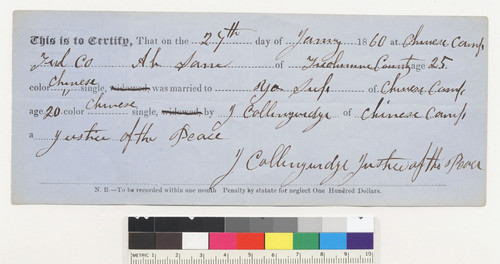 This is to Certify, That on the 24th day of Jany 1860 at Chinese Camp
Co Ah Sam of Tuolumne County age 25
color Chinese single, widowed, was married to Yo Sup of Chinese Camp
age 20 color Chinese single, widowed, by J Collingridge of Chinese Camp
a Justice of the Peace
J Collingridge Justice of the Peace
N. B.—To be recorded within one month Penalty by statute for neglect One Hundred Dollars.
METRIC 1 2 3 4 5 6 7 8 9 10